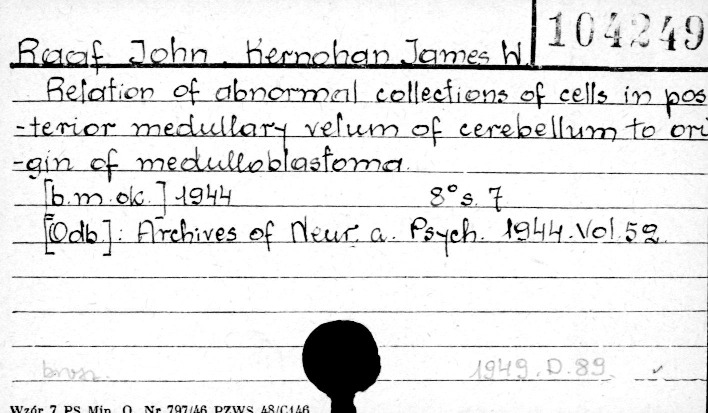 104249
Raaf John. Kernohan James W.
Relation of abnormal collections of cells in pos
-terior medullary velum of cerebellum to ori
-gin of medulloblastoma.
[b.m.ok.] 1944 8° s. 7
[Odb]: Archives of Neur. a. Psych. 1944. Vol. 52.
brosz. 1949. D. 89.
Wzór 7 PS Min. O. Nr 797/46 PZWS 48/C146